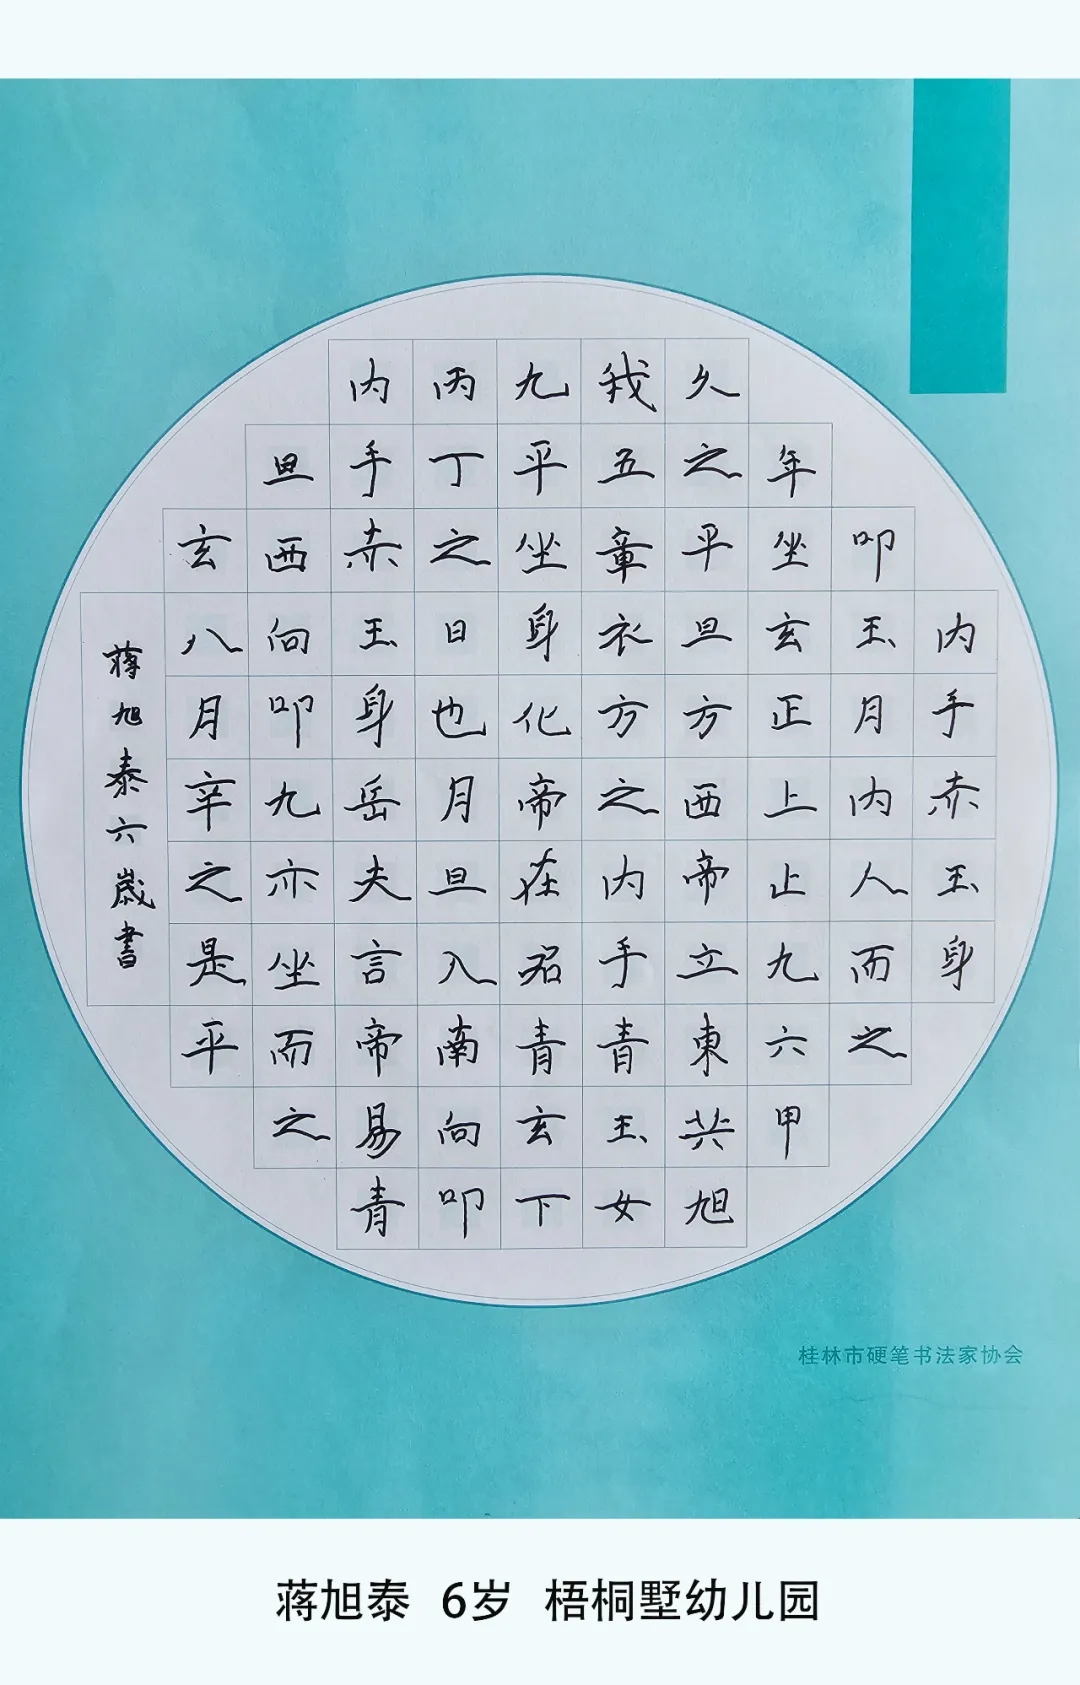 内手赤玉身
叩玉月内人而之
年坐玄正上止九六甲
久之平旦方西帝立東共旭
我五章衣方之内手青玉女
九平坐身化帝在君青玄下
丙丁之日也月旦入南向叩
内手赤玉身岳夫言帝易青
旦西向叩九亦坐而之
玄八月辛之是平
蒋旭泰六歲書
桂林市硬笔书法家协会
蒋旭泰 6岁 梧桐墅幼儿园